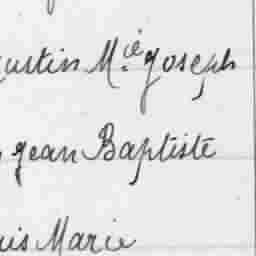 ustin M.ie Joseph
Jean Baptiste
uis Marie